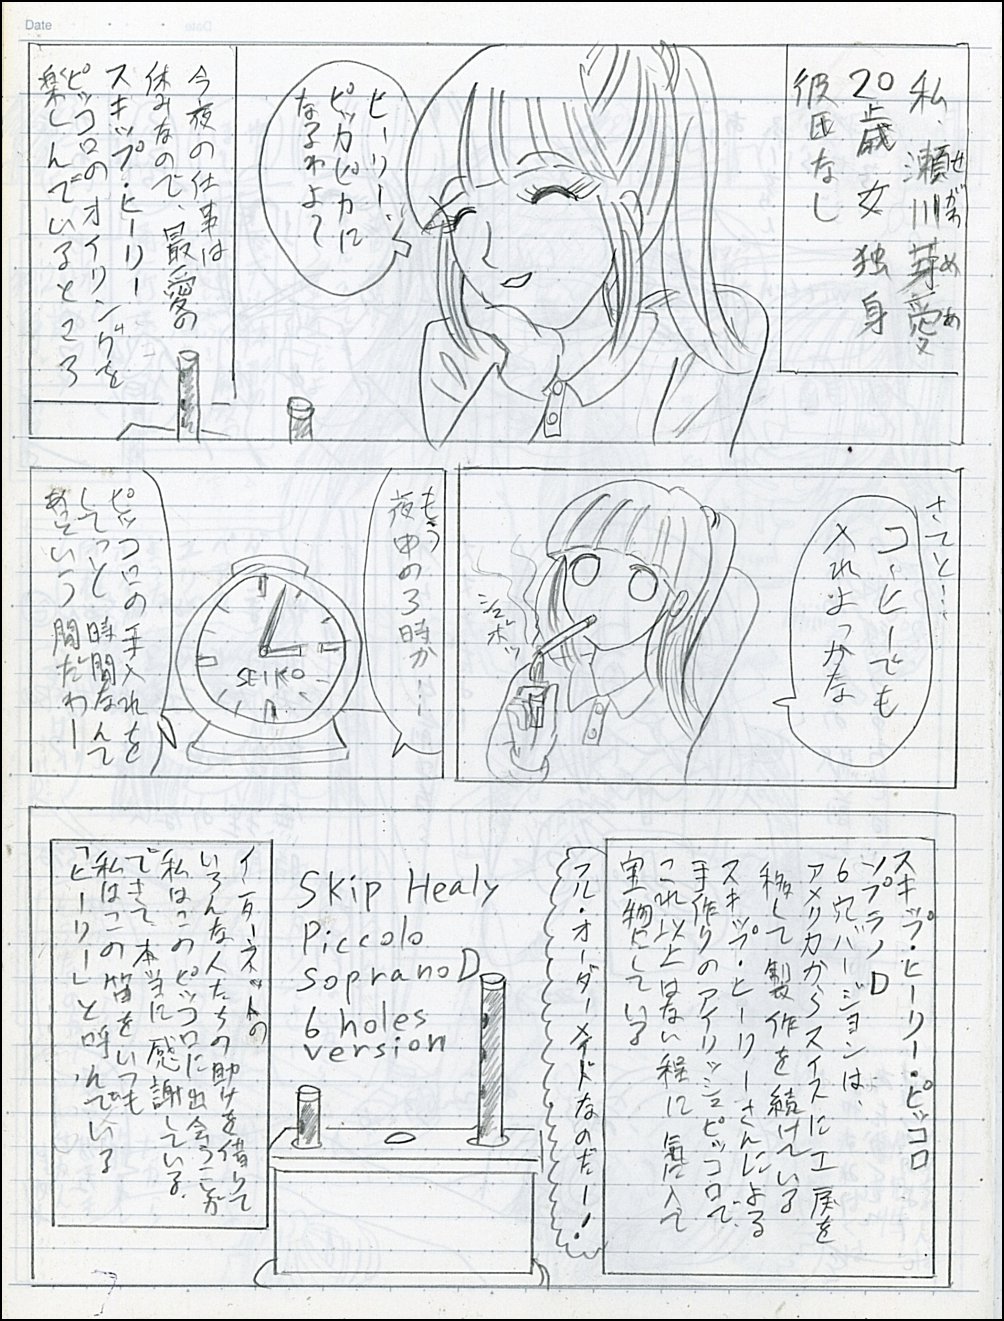 Date
私、瀬川芽愛
せがわ めあ
20歳 女 独身
彼氏なし
ヒーリー、
ピッカピカに
なるわよ〜
今夜の仕事は
休みなので、最愛の
スキップ・ヒーリー
ピッコロのオイリングを
楽しんでいるところ
さてと…
コーヒーでも
入れよっかな
シュボッ
もう
夜中の3時か…
SEIKO
ピッコロの手入れを
してっと時間なんて
あっという間だわー
スキップ・ヒーリー・ピッコロ
ソプラノD
6穴バージョンは、
アメリカからスイスに工房を
移して製作を続けている
スキップ・ヒーリーさんによる
手作りのアイリッシュピッコロで、
これ以上はない程に気に入って
宝物にしている
フル・オーダーメイドなのだー!
Skip Healy
Piccolo
soprano D
6 holes
version
インターネットの
いろんな人たちの助けを借りて
私はこのピッコロに出会うことが
できて、本当に感謝している。
私はこの笛をいつも
「ヒーリー」と呼んでいる